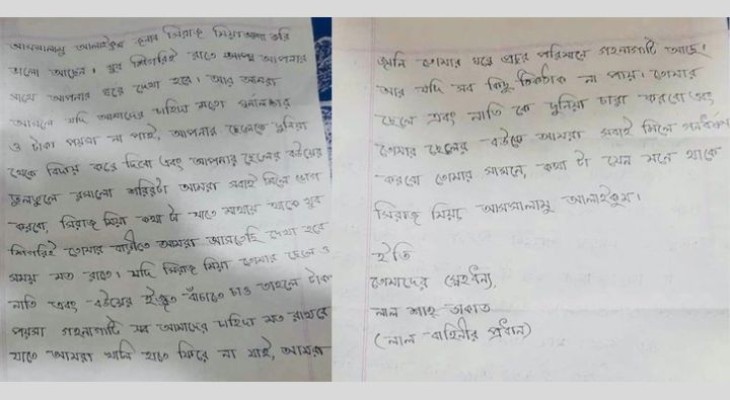 আসসালামু আলাইকুম জনাব সিরাজ মিয়া আশা করি
ভালো আছেন। খুব শিগগিরই রাতে আপনার
সাথে আপনার ঘরে দেখা হবে। আর আমরা
আসলে যদি আমাদের চাহিদা মতো
ও টাকা পয়সা না পাই, আপনার ছেলেকে দুনিয়া
থেকে বিদায় করে দিবো এবং আপনার ছেলের বউয়ের
তুলতুলে রসালো শরিরটা আমরা সবাই মিলে ভোগ
করবো, সিরাজ মিয়া কথা টা যাতে মাথায় থাকে খুব
শিগগিরই তোমার বাড়ীতে আমরা আসতেছি দেখা হবে
সময় মত রাতে। যদি সিরাজ মিয়া তোমার ছেলে ও
নাতি এবং বউয়ের ইজ্জত বাঁচাতে চাও তাহলে টাকা
পয়সা গহনাগাটি সব আমাদের চাহিদা মত রাখবে
যাতে আমরা খালি হাতে ফিরে না যাই, আমরা
জানি তোমার ঘরে প্রচুর পরিমানে গহনাগাটি আছে।
আর যদি সব কিছু ঠিকঠাক না পায়। তোমার
ছেলে এবং নাতি কে দুনিয়া ছাড়া করবো এবং
তোমার ছেলের বউকে আমরা সবাই মিলে গনধর্ষণ
করবো তোমার সামনে, কথা টা যেন মনে থাকে
সিরাজ মিয়া আসসালামু আলাইকুম।
ইতি
তোমাদের স্নেহধন্য,
লাল শাহ ডাকাত
(লাল বাহিনীর প্রধান)